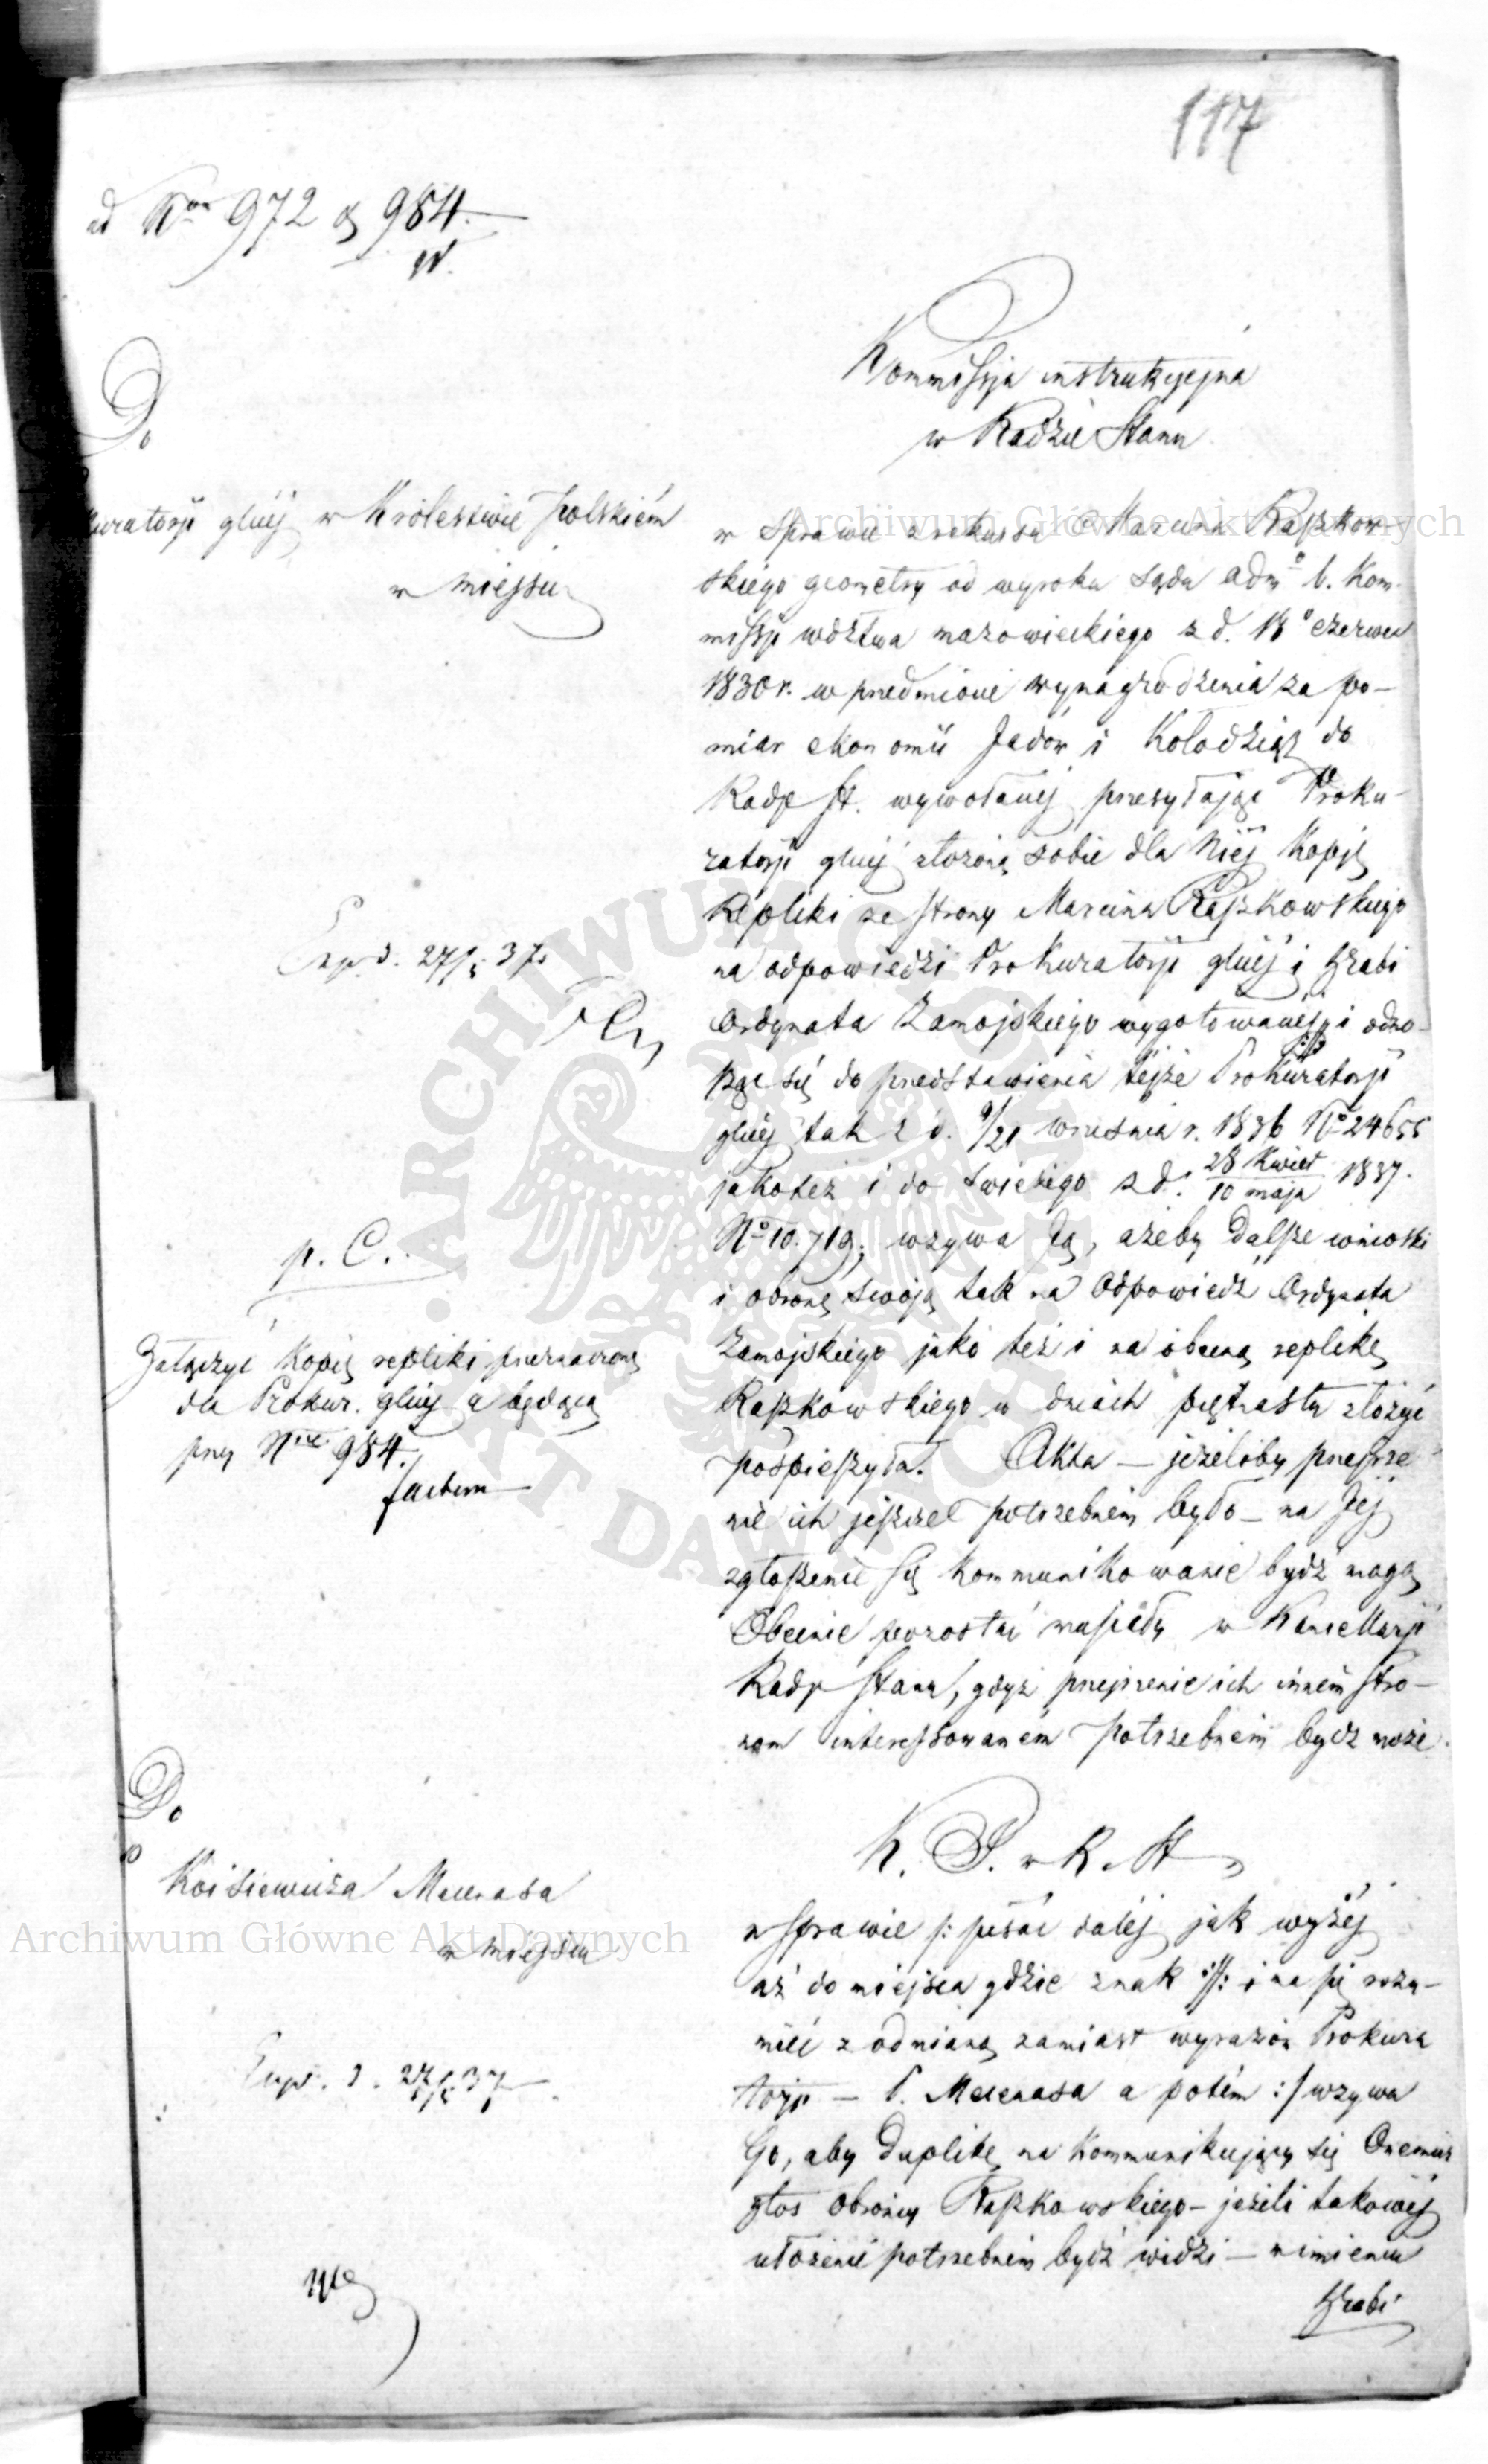 117
ad N 972 & 984.
Do
kuratorji głnéj w Królestwie Polskiém
w miejscu
Expd. 27/5 37.
p. C.
Załączyć Kopię repliki przeznaczoną
dla Prokur. głnéj a będącą
przy Nrze 984.
factum
Do
Mecenasa
w miejscu
Exp. d. 27/5 37
Kommissja instrukcyjna
w Radzie Stanu
w Sprawie z rekursu Marcina Raszkow-
skiego geometry od wyroku Sądu adm° b. Kom-
missji wdztwa mazowieckiego z d. 18° czerwca
1830 r. w przedmiocie wynagrodzenia za po-
miar ekonomii Jadów i Kołodziąż do
Rady St. wywołanéj przesyłając Proku-
ratorji głnéj złożoną sobie dla Niéj Kopję
Repliki ze strony Marcina Raszkowskiego
na odpowiedzi Prokuratorji głnéj i Hrabi
Ordynata Zamojskiego wygotowanéj i odno-
sząc się do przedstawienia téjże Prokuratorji
głnéj tak z d. 9/21 września r. 1836 No 24655
jakoteż i do świeżego z d. 28 Kwiet/10 maja 1837.
No 10.719; wzywa Ją, ażeby dalsze wnioski
i obronę swoją tak na Odpowiedź Ordynata
Zamojskiego jako też i na obecną replikę
Raszkowskiego w dniach piętnastu złożyć
pośpieszyła. Akta — jeżeliby przejrze-
nie ich jeszcze potrzebném było — na Jéj
zgłoszenie się kommunikowanie bydź mogą
Obecnie pozostać musiały w Kancellarji
Rady Stanu, gdyż przejrzenie ich inném stro-
nom interessowaném potrzebném bydź może.
K. J. w R. St.
w Sprawie p: pisać daléj jak wyżéj
aż do miejsca gdzie znak :/: i ma się rozu-
mieć z odmianą zamiast wyrazów Prokura
torji — P. Mecenasa a potém :/ wzywa
Go, aby Duplikę na kommunikujący się Onemuż
głos obrońcy Raszkowskiego — jeżeli takowéj
ułożenie potrzebném bydź widzi — w imieniu
Hrabi